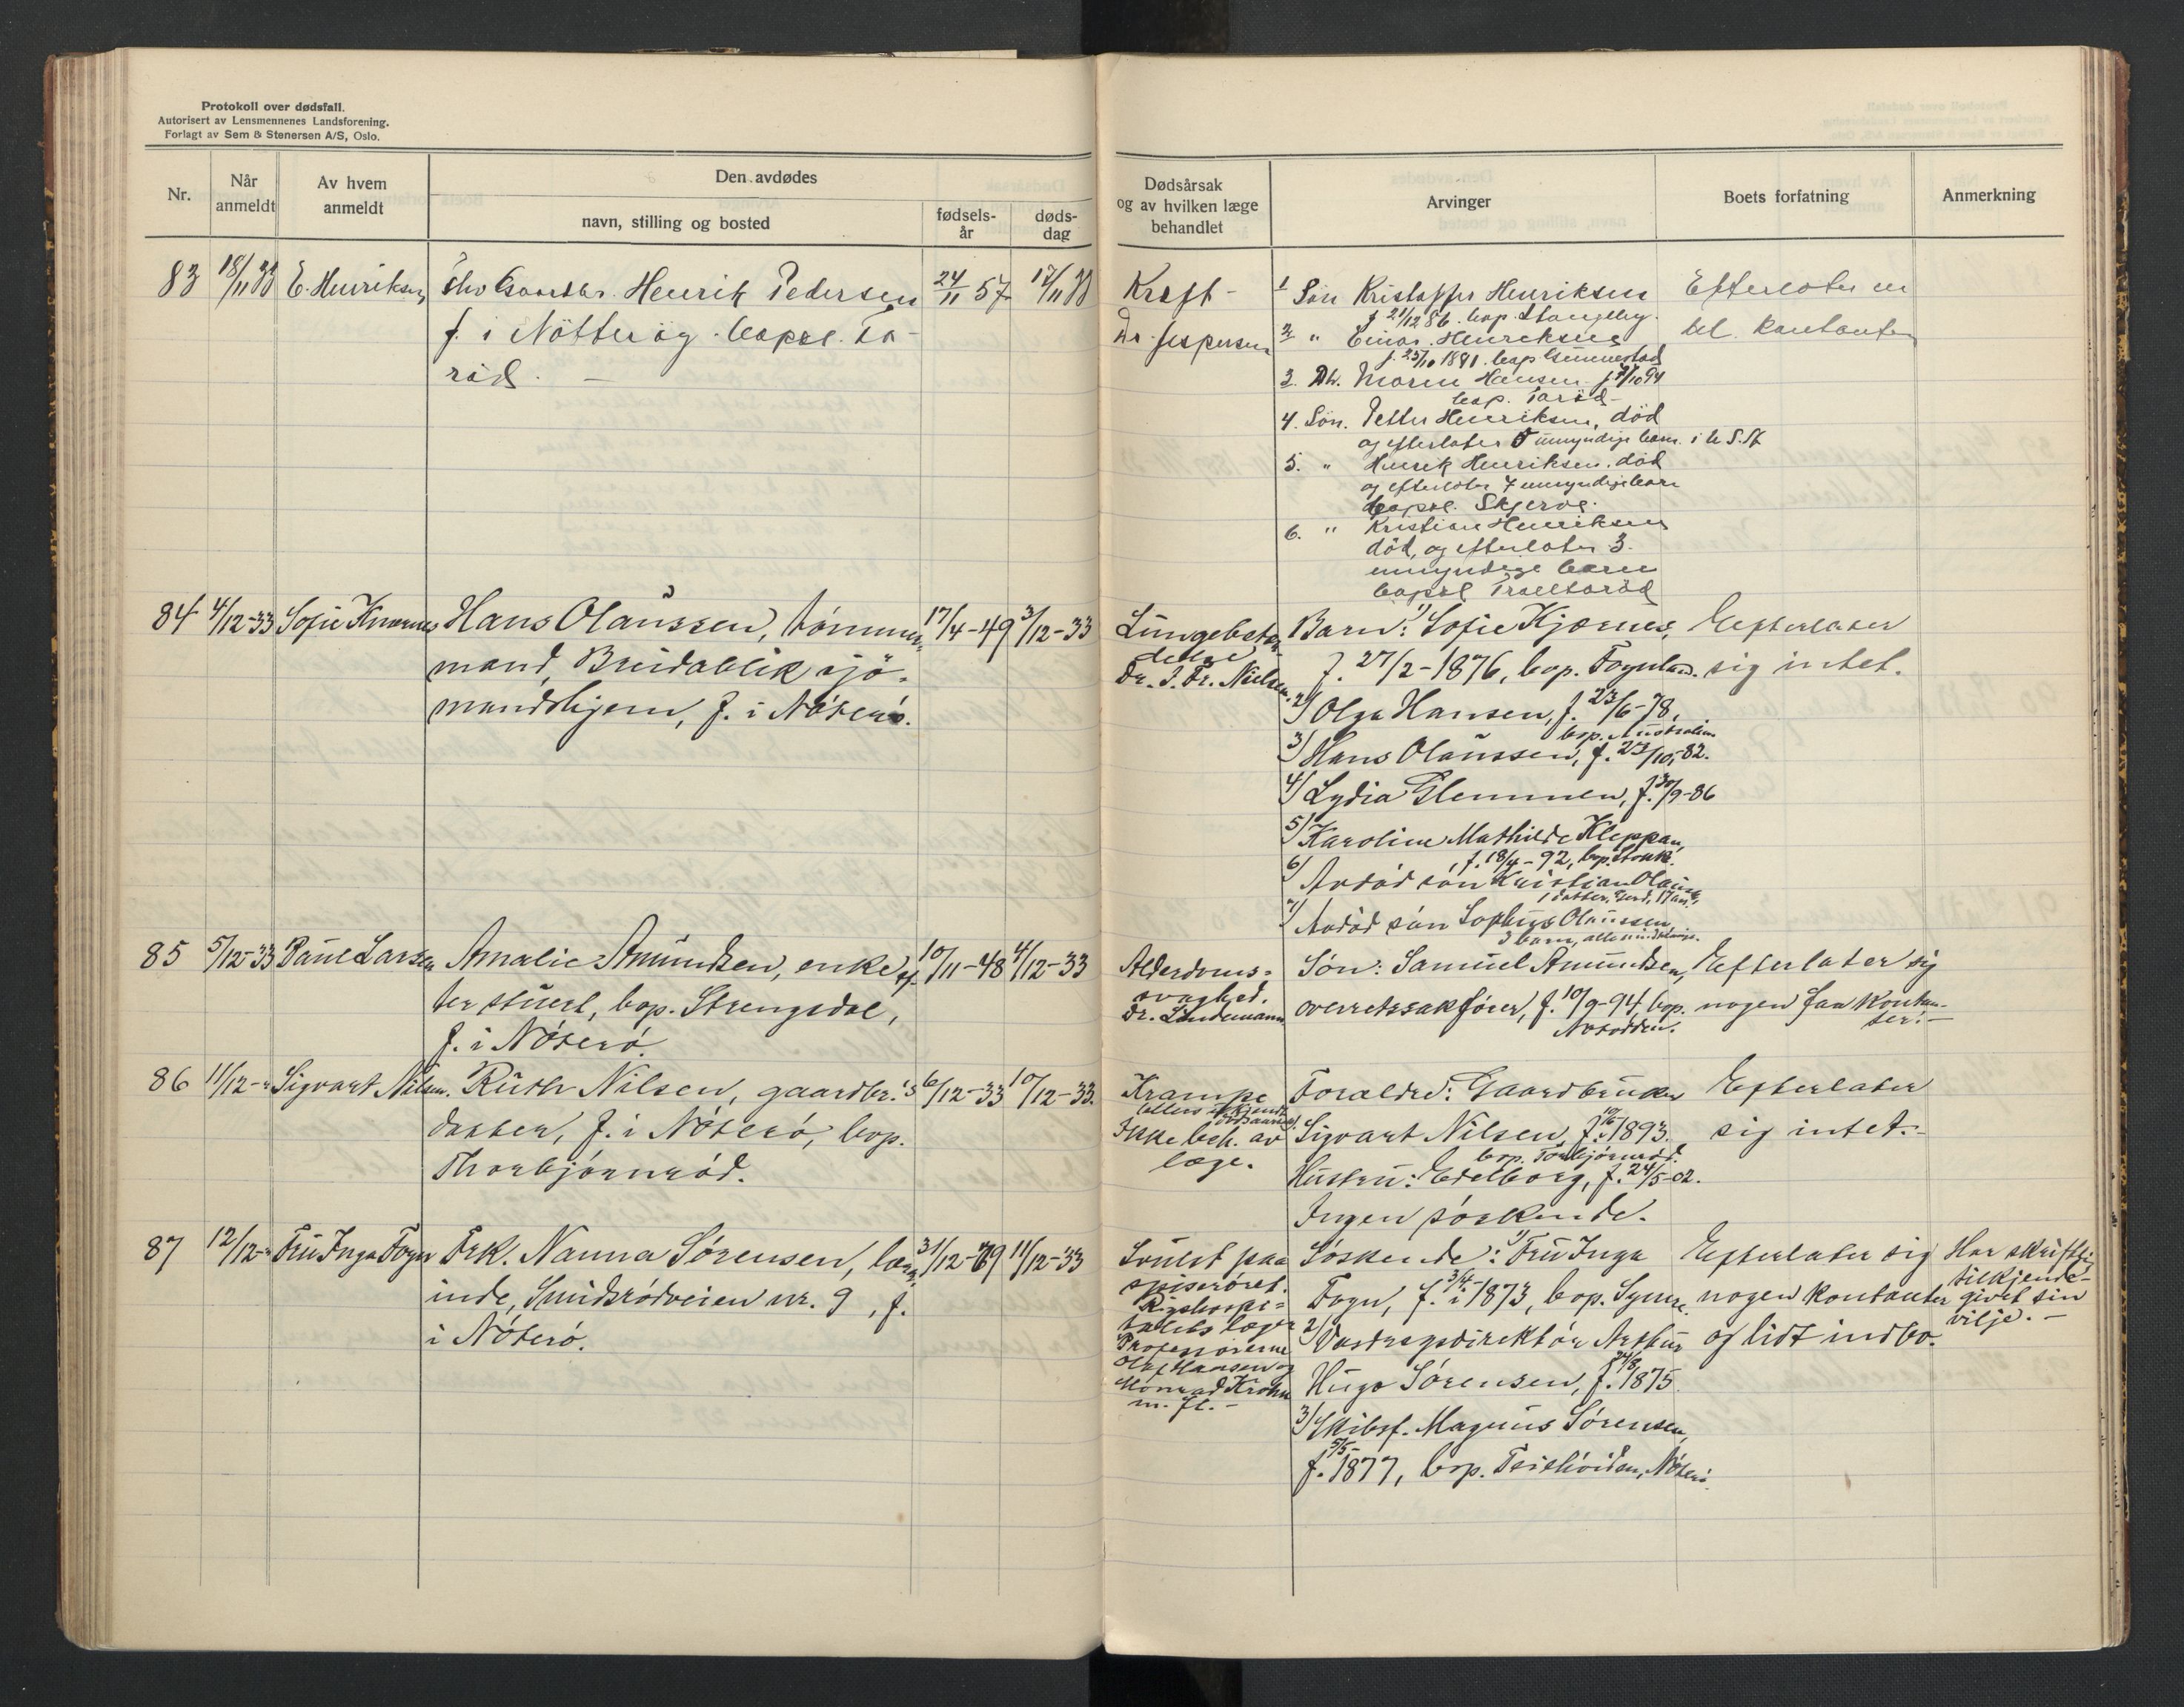 Protokoll over dødsfall.
Autorisert av Lensmennenes Landsforening.
Forlagt av Sem & Stenersen A/S, Oslo.
Nr.
Når anmeldt
Av hvem anmeldt
Den avdødes
navn, stilling og bosted
fødsels-år
døds-dag
Dødsårsak og av hvilken læge behandlet
Arvinger
Boets forfatning
Anmerkning
83 18/11 33 E. Henriksen Henrik Pedersen 24/11 57 17/11 33
f. i Nötteröy. bopel. Ta-
röd. —
Kreft -
Dr. Jespersen
1 Sön Kristoffer Henriksen
f 21/12 86. bop.
2 " Einar Henriksen
f. 25/10 1891. bop
3. Dtr. Maren Hansen f. 94
bop. Taröd
4. Sön. Petter Henriksen, död
og efterlater 5 umyndige barn
5. " Henrik Henriksen. död
og efterlater 7 umyndige barn
bopel. Skjerve.
6. " Kristian Henriksen
död, og efterlater 3.
umyndige barn
bopel
Efterlater en
del kontanter
84 4/12-33 Sofie Hans Olaussen, tømmer- 17/4-49 3/12-33
mand, Breidablik sjö-
mandshjem, f. i Nøterø.
Lungebeten-
delse
Dr. J. Fr. Nielsen
Barn: 1) Sofie Kjærnes,
f. 27/2-1876, bop. Føynland.
2) Olga Hansen, f. 23/6-78,
bop. Australien
3) Hans Olaussen, f. 23/10-82.
4) Lydia Glemmen, f. 30/9-86
5) Karoline Mathilde Kleppan,
f. 18/4-92, bop. Stokke.
6) Avdød søn Kristian Olauss.
1 datter, Gerd, 17 aar.
7) Avdød søn Sophus Olaussen
3 barn, alle mindreaarige.
Efterlater
sig intet.
85 5/12-33 Paul Larsen Amalie Amundsen, enke ef- 10/11-48 4/12-33
ter stuert, bop. Strengsdal,
f. i Nøterø.
Alderdoms-
svaghed.
Dr. Lindemann
Søn: Samuel Amundsen,
overretssakfører, f. 10/9-94, bop.
Notodden.
Efterlater sig
nogen faa kontan-
ter. —
86 11/12-" Sigvart Nilsen. Ruth Nilsen, gaardbr.'s 6/12-33 10/12-33.
datter, f. i Nøterø, bop.
Thorbjørnrød.
Krampe
(ellers ukjendt
dødsaarsak).
Ikke beh. av
læge.
Foraldre: Gaardbruker
Sigvart Nilsen, f. 1893.
bop. Torbjørnrød.
Hustru: Edelborg, f. 24/5-02.
Ingen søskende.
Efterlater
sig intet. -
87 12/12-" Fru Inga Føyn Frk. Nanna Sørensen, lærer- 31/12-69 11/12-33
inde, Smidsrødveien nr. 9, f.
i Nøterø.
Svulst paa
spiserøret.
Rigshospi-
talets læger
Professorerne
Olaf Hansen og
Monrad Krohn
m. fl. -
Søskende: 1) Fru Inga
Føyn, f. 3/4 1873, bop.
2) Vasdragsdirektør Arthur
Hugo Sørensen, f. 24/8 1875.
3) Skibsf. Magnus Sørensen,
f. 5/5- 1877, bop. Nøterø.
Efterlater sig
nogen kontanter
og lidt indbo.
Har skriftlig
tilkjende-
givet sin
vilje. —